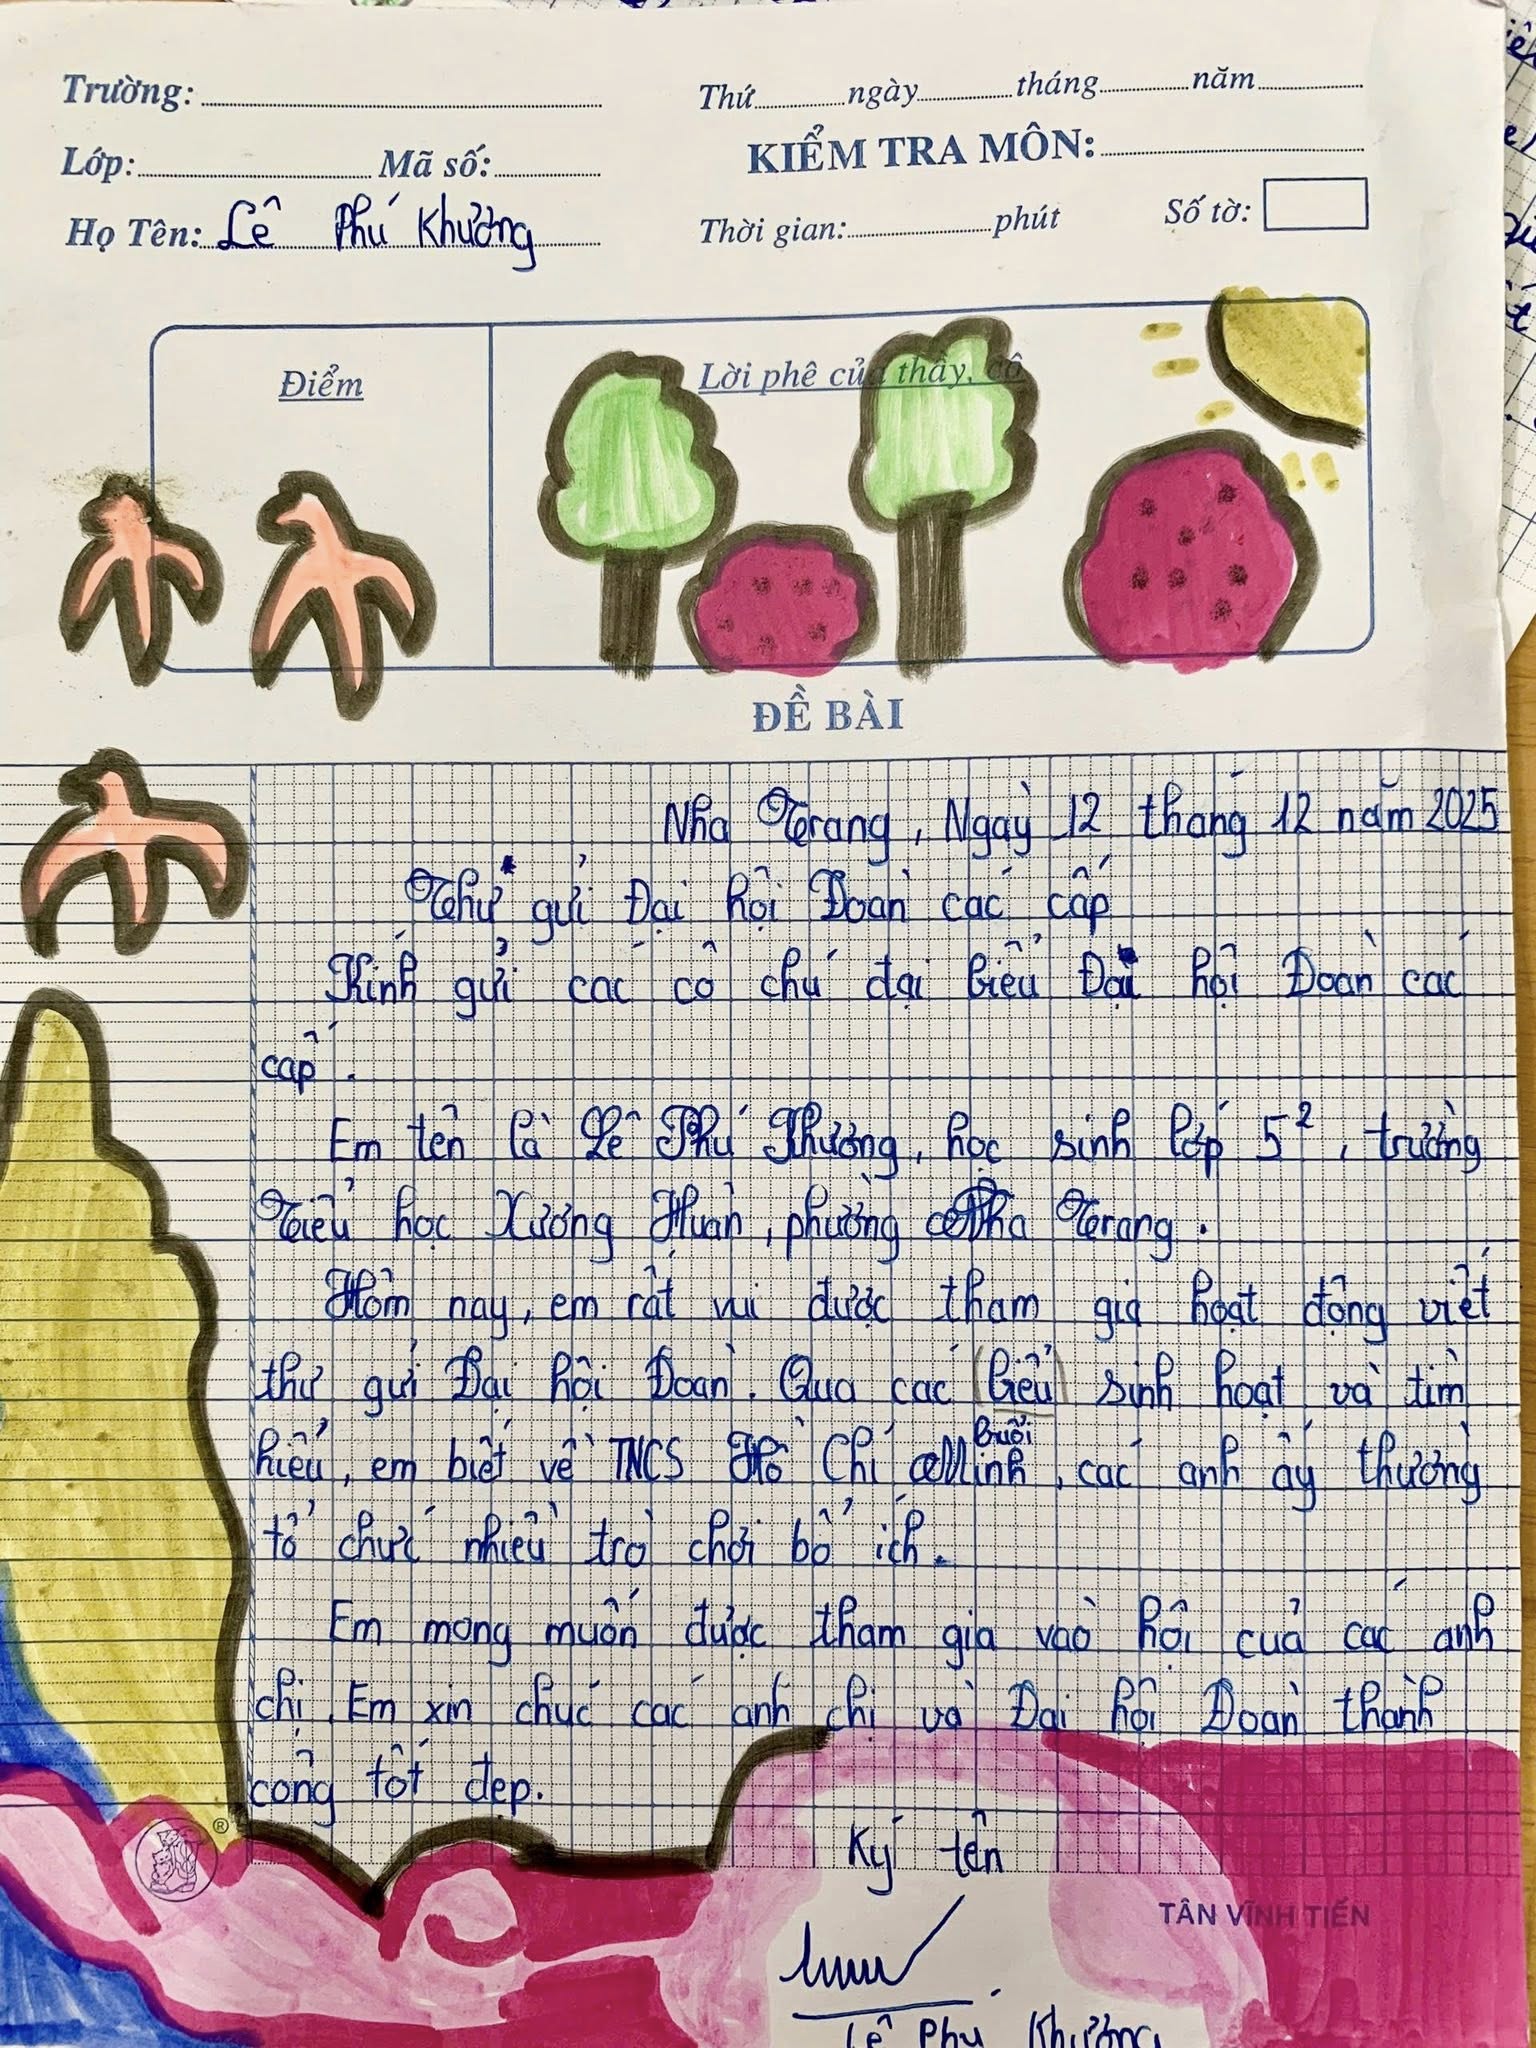 Trường:
Thứ ngày tháng năm
Lớp: Mã số:
KIỂM TRA MÔN:
Họ Tên: Lê Phú Khương
Thời gian: phút
Số tờ:
Điểm
Lời phê của thầy, cô
ĐỀ BÀI
Nha Trang, Ngày 12 tháng 12 năm 2025
Thư gửi Đại hội Đoàn các cấp
Kính gửi các cô chú đại biểu Đại hội Đoàn các
cấp.
Em tên là Lê Phú Khương, học sinh lớp 5², trường
Tiểu học Xương Huân, phường Nha Trang.
Hôm nay, em rất vui được tham gia hoạt động viết
thư gửi Đại hội Đoàn. Qua các (biểu) sinh hoạt và tìm
buổi
hiểu, em biết về TNCS Hồ Chí Minh, các anh ấy thường
tổ chức nhiều trò chơi bổ ích.
Em mong muốn được tham gia vào hội của các anh
chị. Em xin chúc các anh chị và Đại hội Đoàn thành
công tốt đẹp.
®
Ký tên
TÂN VĨNH TIẾN
Lê Phú Khương